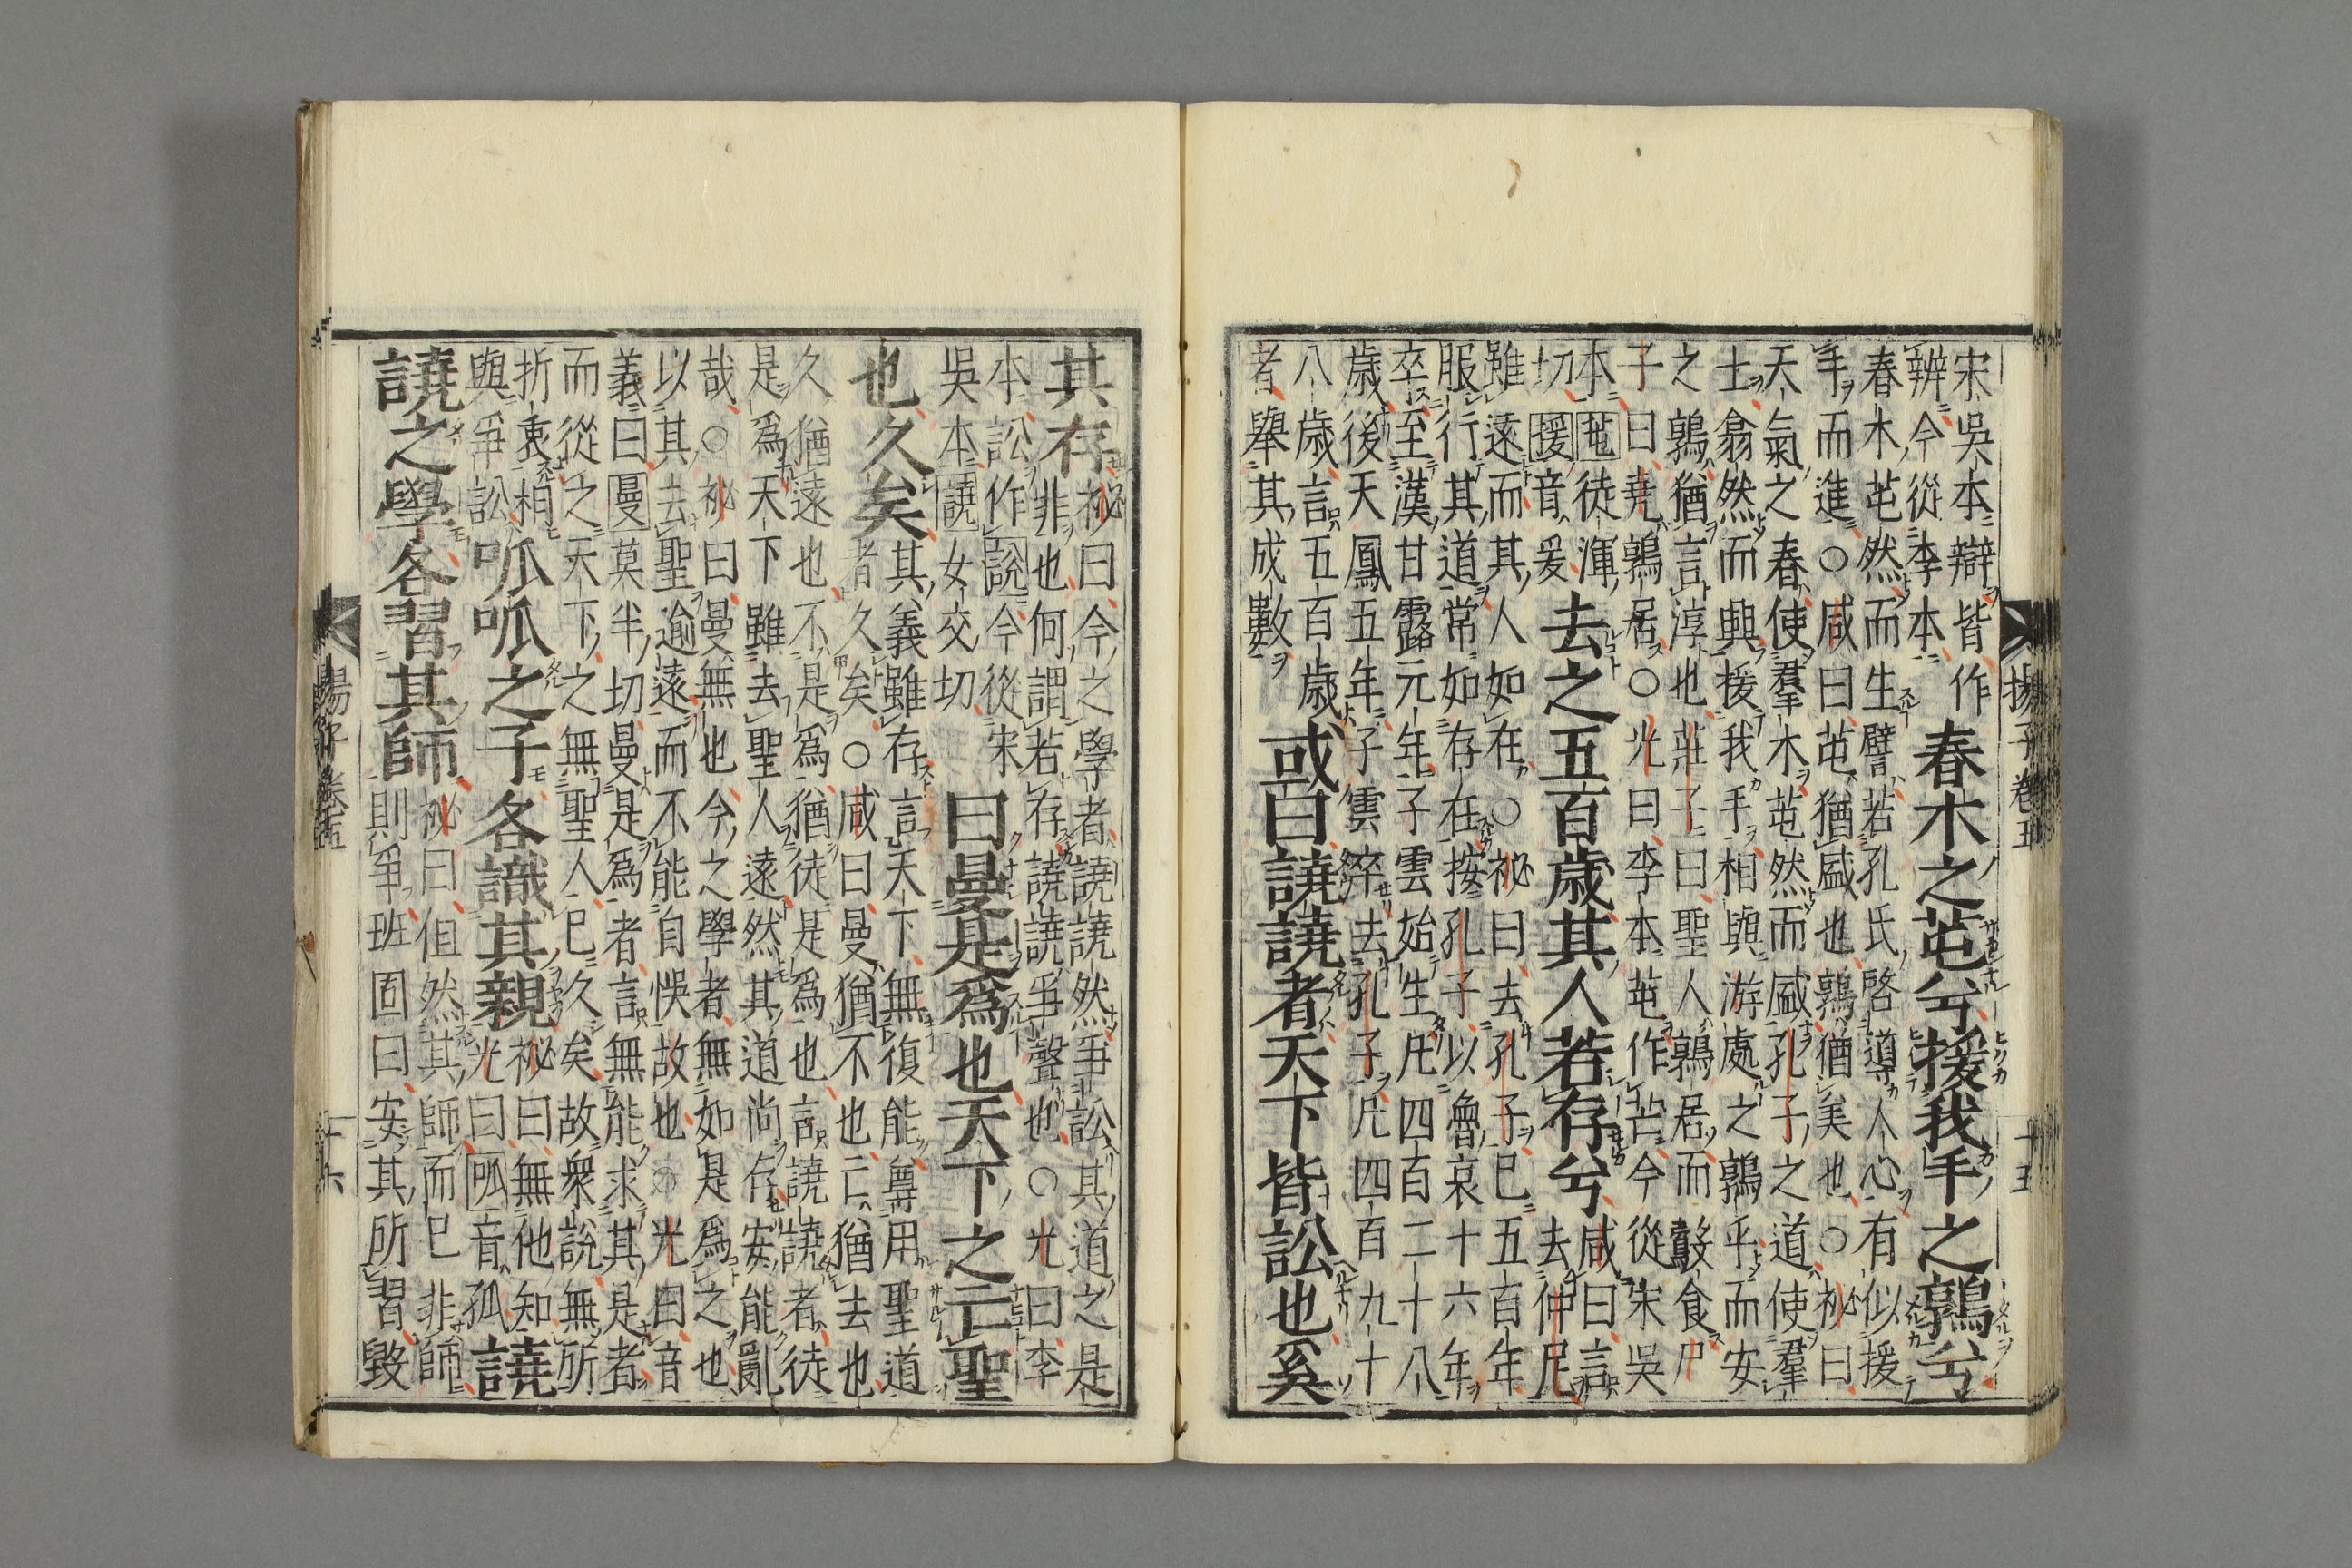 宋吳本辯皆作
辨今從李本
春木之芚兮援我手之鶉兮
春木芚然而生譬若孔氏啓導人心有似援
手而進○咸曰芚猶盛也鶉猶美也○祕曰
天氣之春使羣木芚然而盛孔子之道使羣
士翕然而興援我手相與游處之鶉乎而安
之鶉猶言淳也莊子曰聖人鶉居而鷇食尸
子曰堯鶉居○光曰李本芚作芒今從宋吳
本芚徒渾
切援音爰
去之五百歲其人若存兮
咸曰言
去仲尼
雖遠而其人如在○祕曰去孔子已五百年
服行其道常如存在按孔子以魯哀十六年
卒至漢甘露元年子雲始生凡四百二十八
歲後天鳳五年子雲卒去孔子凡四百九十
八歲言五百歲
者舉其成數
或曰譊譊者天下皆訟也奚
揚子卷五
十五
其存
祕曰今之學者譊譊然爭訟其道之是
非也何謂若存譊譊爭聲也○光曰李
本訟作說今從宋
吳本譊女交切
曰曼是爲也天下之亡聖
也久矣
其義雖存言天下無復能尊用聖道
者久矣○咸曰曼猶不也亡猶去也
久猶遠也不是爲猶徒是爲也言譊譊者徒
是爲天下雖去聖人遠然其道尚存安能亂
哉○祕曰曼無也今之學者無如是爲之也
以其去聖逾遠而不能自悞故也○光曰音
義曰曼莫半切曼是爲者言無能求其是者
而從之天下之無聖人已久矣故衆說無所
折衷相
與爭訟
呱呱之子各識其親
祕曰無他知
光曰呱音孤
譊
譊之學各習其師
祕曰但然其師而已非師
則爭班固曰安其所習毀
揚子卷五
十六